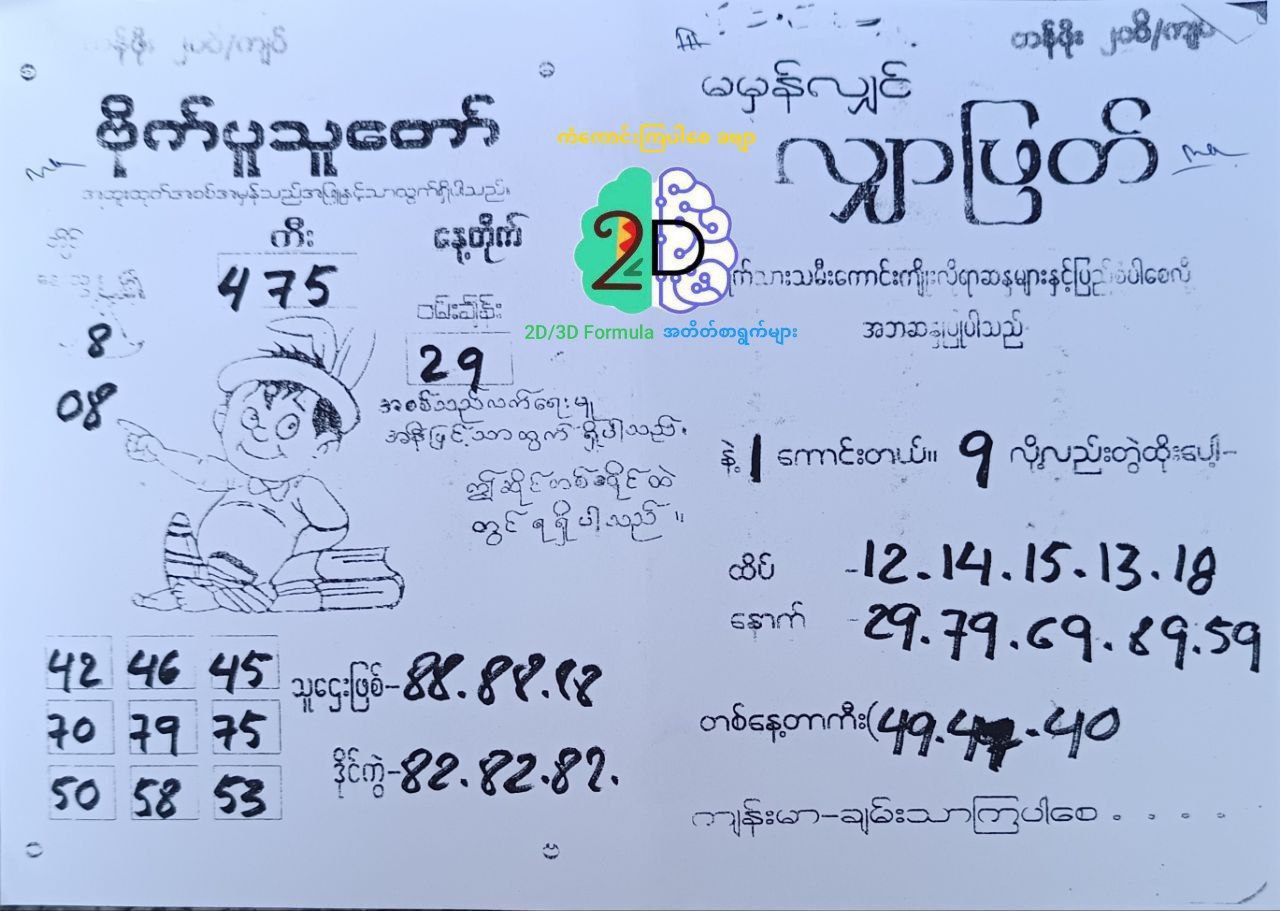 တန်ဖိုး ၂၀၀/ကျပ်
ဗိုက်ပူသူတော်
အထူးထုတ်အစစ်အမှန်သည်အဖြူနှင့်သာထွက်ရှိပါသည်။
ကီး
နေ့တိုက်
475
ဝမ်းချိန်း
8
29
08
အစစ်သည်လက်ရေးမူ
အနီဖြင့်သာထွက်ရှိပါသည်။
ဤဆိုင်တစ်ဆိုင်ထဲ
တွင် ရရှိပါသည်။
42 46 45
70 79 75
50 58 53
သူဌေးဖြစ်-88.88.88
ဒိုင်ကွဲ-82.82.82.
ကံကောင်းကြပါစေ ခမျာ
2D
2D/3D Formula အတိတ်စာရွက်များ
တန်ဖိုး ၂၀၀/ကျပ်
မမှန်လျှင်
လျှာဖြတ်
သားသမီးကောင်းကျိုးလိုရာဆန္ဒများနှင့်ပြည့်စုံပါစေလို့
အဘဆန္ဒပြုပါသည်
နဲ့ 1 ကောင်းတယ်။ 9 လို့လည်းတွဲထိုးပေါ့-
ထိပ် -12.14.15.13.18
နောက် -29.79.69.89.59
တစ်နေ့တာကီး(49. .40
ကျန်းမာ-ချမ်းသာကြပါစေ . . . .